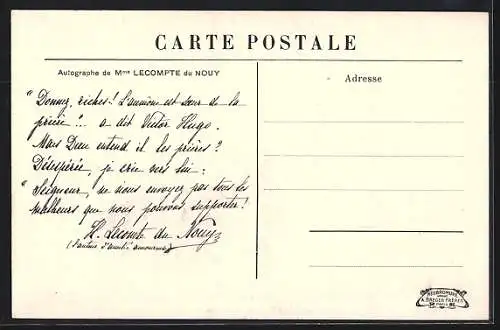 CARTE POSTALE
Autographe de Mme LECOMPTE du NOUY
Adresse
"Donnez, riches! L'aumône est sœur de la
prière"... a dit Victor Hugo.
Mais Dieu entend il les prières?
Désespérée, je crie vers lui:
"Seigneur, ne nous envoyez pas tous les
malheurs que nous pouvons supporter!
H. Lecomte du Nouy
(l'auteur d'amitié amoureuse)
A. BREGER FRÈRES
PARIS